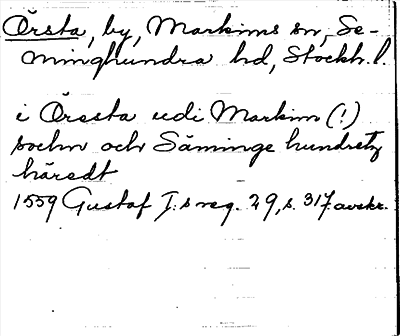 Örsta, by, Markims sn, Se-
minghundra hd, Stockh. l.
i Örssta udi Markim (!)
sochn och Säminge hundretz
häredt
1559 Gustaf I:s reg. 29, s. 317. avskr.